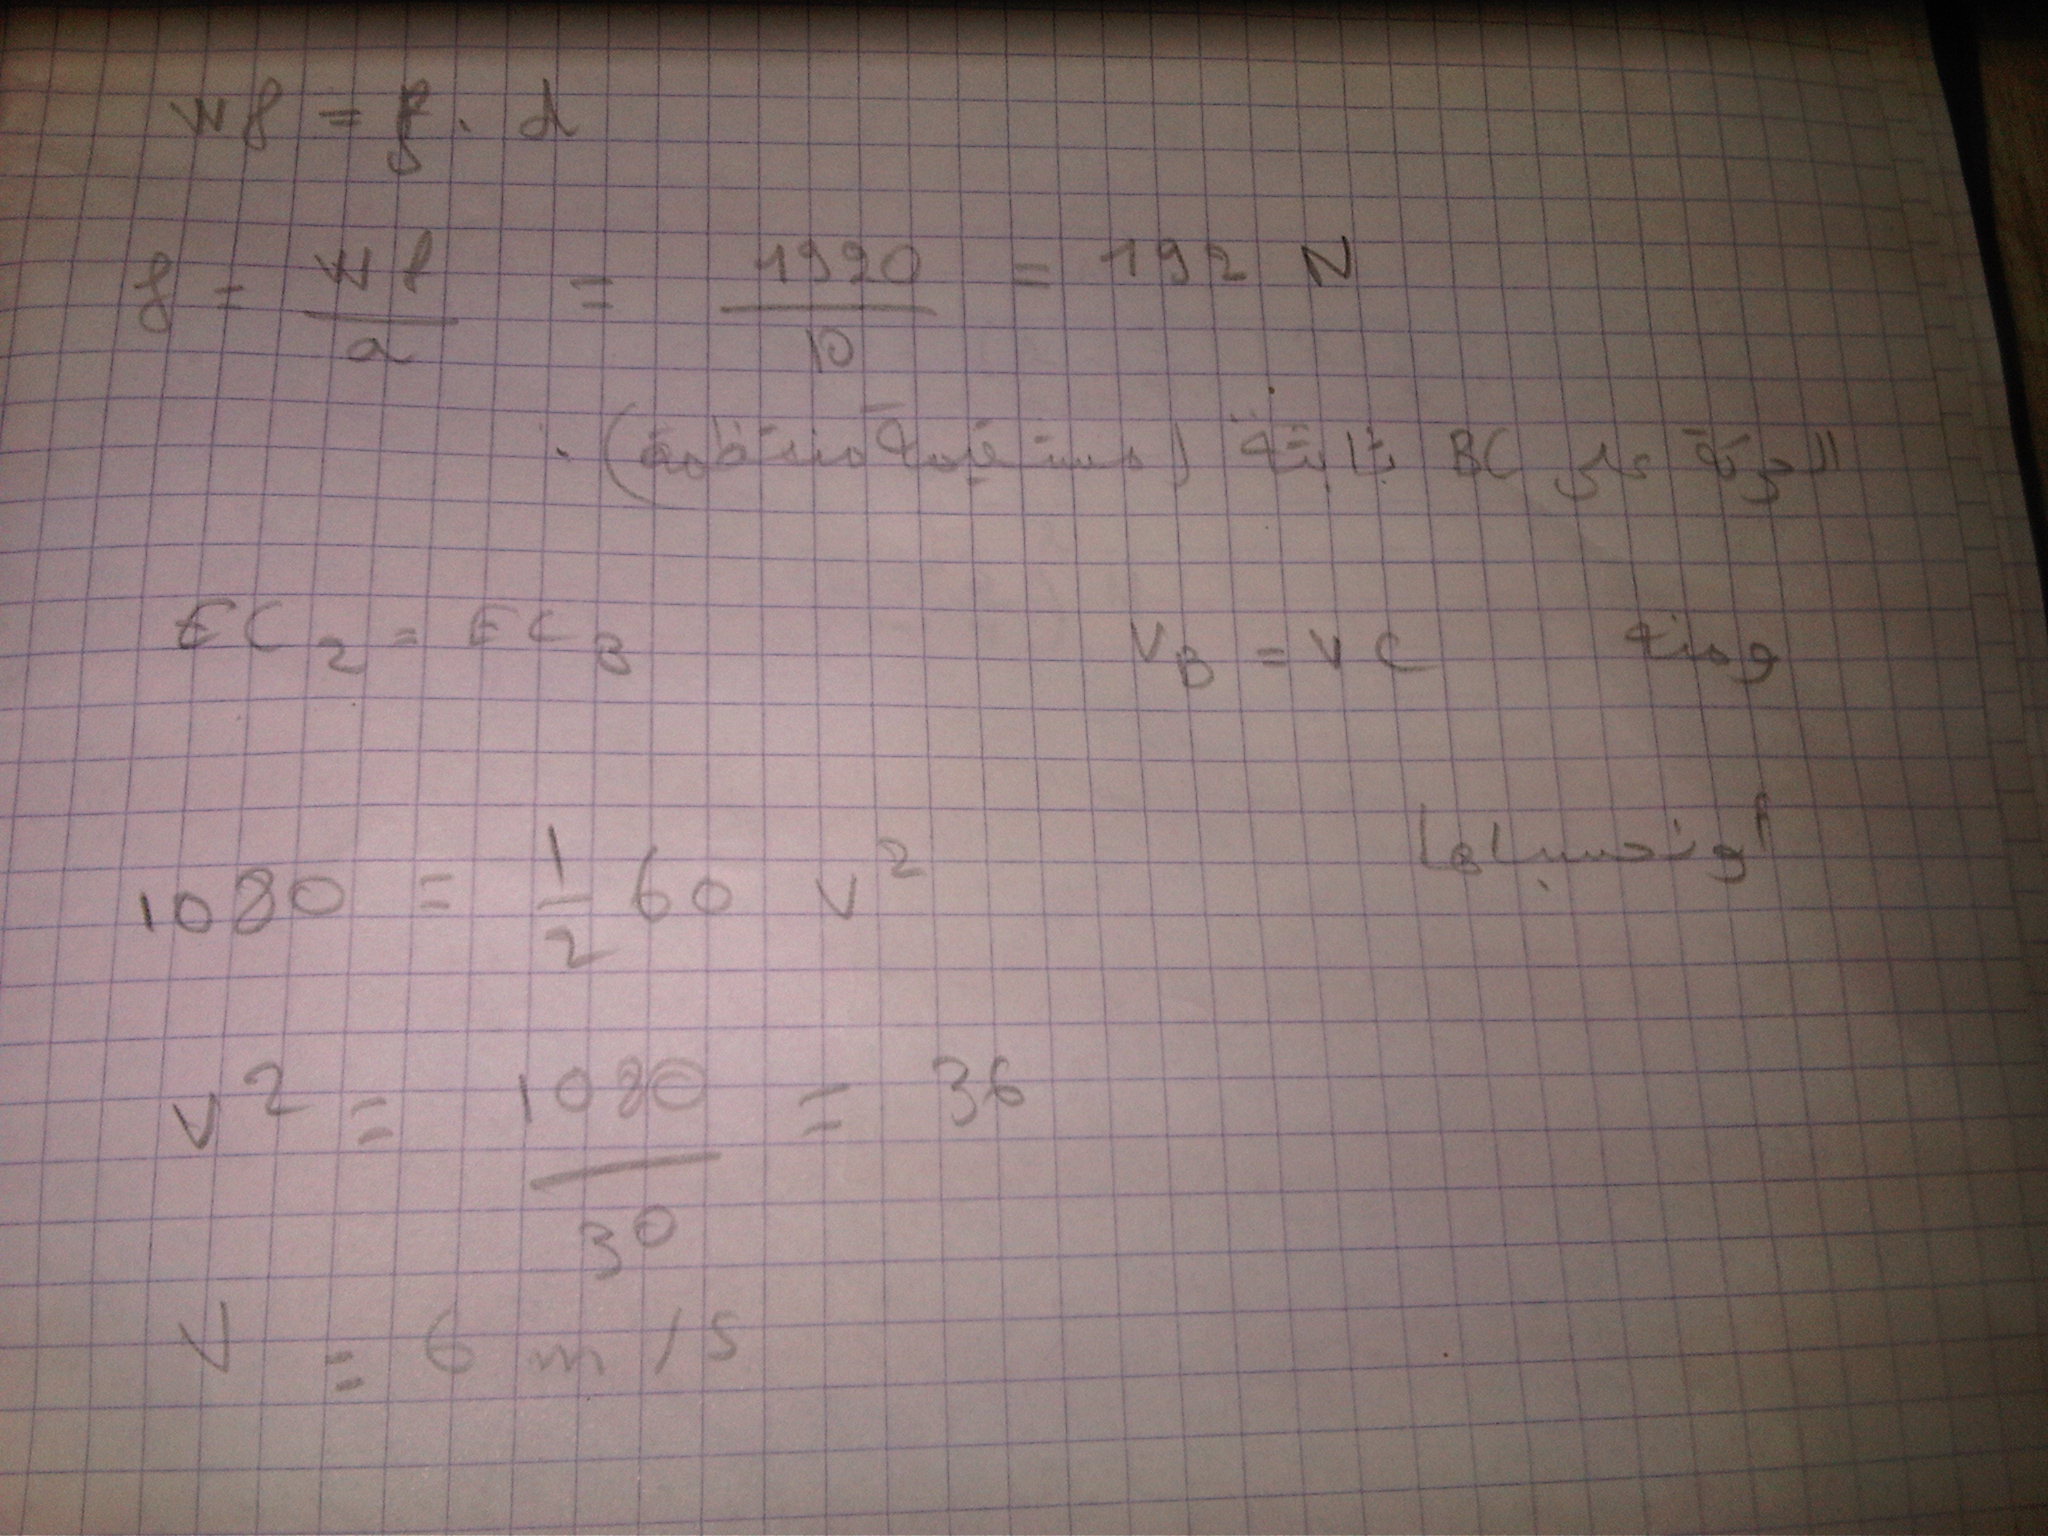 Wf = f . d
f = Wf / d = 1920 / 10 = 192 N
الحركة على BC ثابتة (مستقيمة منتظمة) .
EC2 = EC3 VB = VC ومنه
أو نحسباها
1080 = 1/2 60 v²
v² = 1080 / 30 = 36
V = 6 m/s